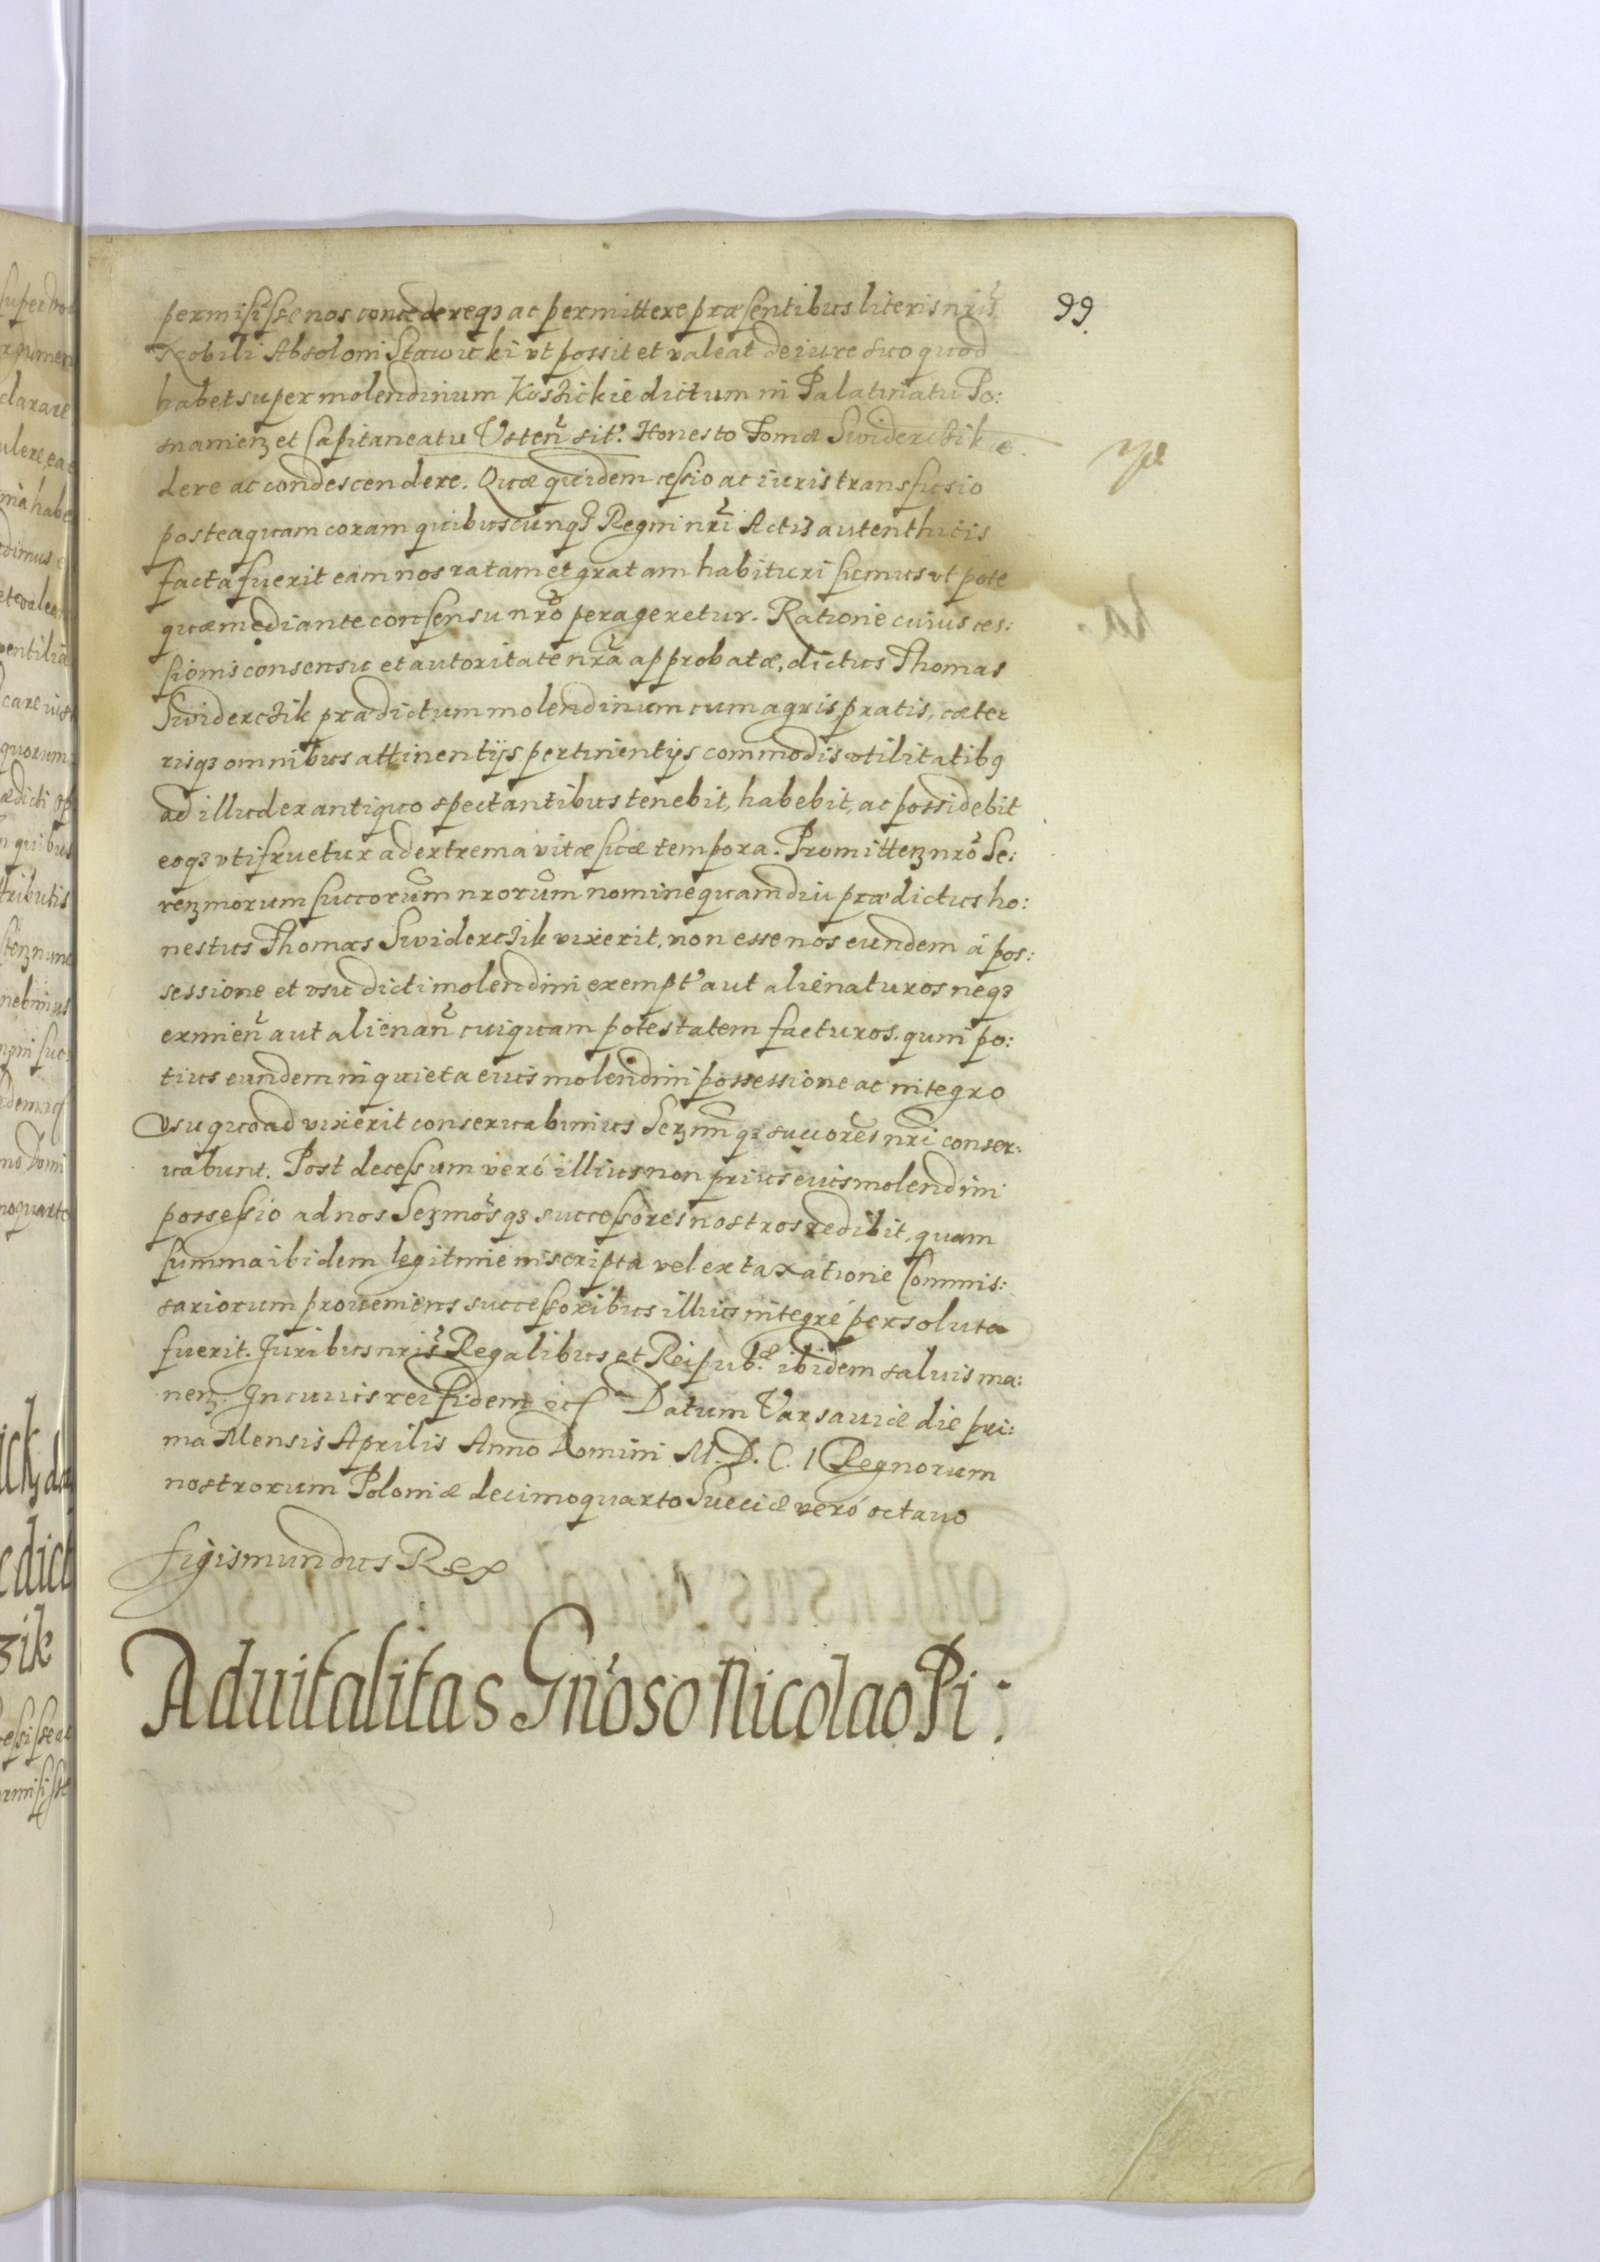 99.
permisisse nos concedereqz ac permittere præsentibus literis nris
Nobili Absoloni Stawicki vt possit et valeat de iure suo quod
habet super molendinum Koszickie dictum in Palatinatu Po:
snanienz et Capitaneatu Usten sit. Honesto Tomæ Swiderczik ce
dere ac condescendere. Quæ quidem cessio ac iuris transfusio
posteaquam coram quibuscunqz Regni nri Actis autenthicis
facta fuerit eam nos ratam et gratam habituri sumus vt pote
quæ mediante consensu nro perageretur. Ratione cuius ces:
sionis consensu et autoritate nra approbatæ, dictus Thomas
Swiderczik prædictum molendinum cum agris, pratis, cæter
risqz omnibus attinentijs pertinentijs commodis vtilitatibq
ad illud ex antiquo spectantibus tenebit, habebit, ac possidebit
eoqz vtifruetur ad extrema vitæ suæ tempora. Promittenz nro Se:
renzmorum succorum nrorum nomine quamdiu prædictus ho:
nestus Thomas Swiderczik vixerit, non esse nos eundem á pos:
sessione et vsu dicti molendini exempt' aut alienaturos neqz
eximien aut alienan cuiquam potestatem facturos. quin po:
tius eundem in quieta eius molendini possessione ac integro
vsu quoad vixerit conseruabimus Sezmiqz succores nri conser:
uabunt. Post decessum veró illius non prius eius molendini
possessio ad nos Sezmosqz successores nostros redibit, quam
summa ibidem legitime inscripta vel ex taxatione Commis:
sariorum proueniens successoribus illius integré persoluta
fuerit. Juribus nris Regalibus et Reipub: ibidem saluis ma:
nenz In cuius rei fidem etc Datum Varsauiæ die pri:
ma Mensis Aprilis Anno Domini M. D. C. I Regnorum
nostrorum Poloniæ decimoquarto Sueciæ veró octauo
Sigismundus Rex
Aduitalitas Gnoso Nicolao Pi: